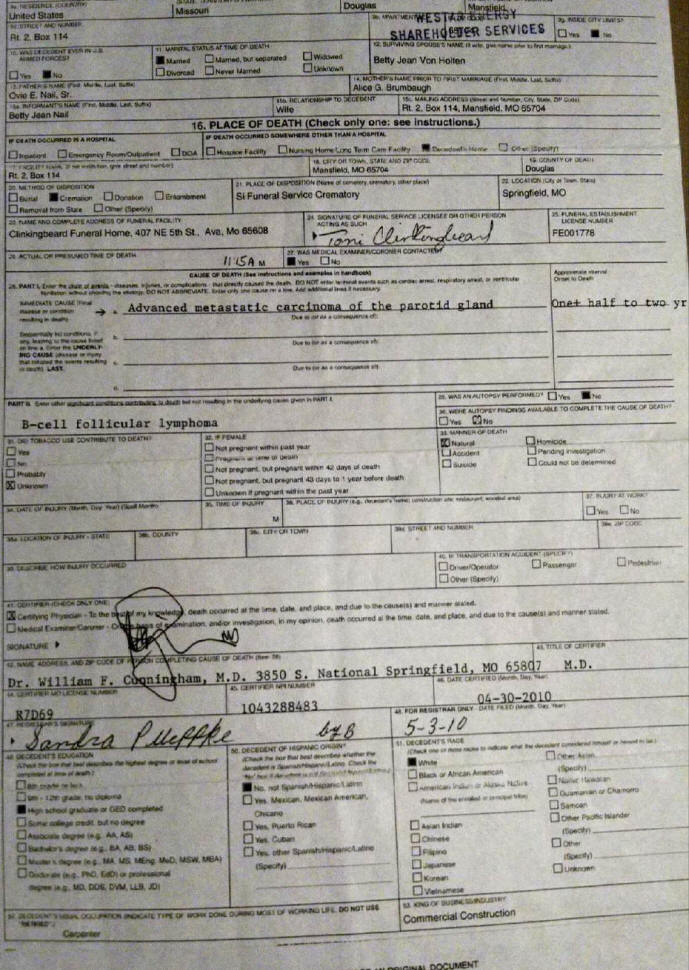 United States
Missouri
Douglas
Mansfield
Rt. 2, Box 114
WESTAR ENERGY
SHAREHOLDER SERVICES
9g. INSIDE CITY LIMITS?
Yes No
10. WAS DECEDENT EVER IN U.S. ARMED FORCES?
Yes No
11. MARITAL STATUS AT TIME OF DEATH
Married Married, but separated Widowed
Divorced Never Married Unknown
12. SURVIVING SPOUSE'S NAME (If wife, give name prior to first marriage.)
Betty Jean Von Holten
13. FATHER'S NAME (First, Middle, Last, Suffix)
Ovie E. Nail, Sr.
14. MOTHER'S NAME PRIOR TO FIRST MARRIAGE (First, Middle, Last, Suffix)
Alice G. Brumbaugh
15a. INFORMANT'S NAME (First, Middle, Last, Suffix)
Betty Jean Nail
15b. RELATIONSHIP TO DECEDENT
Wife
15c. MAILING ADDRESS (Street and Number, City, State, ZIP Code)
Rt. 2, Box 114, Mansfield, MO 65704
16. PLACE OF DEATH (Check only one: see instructions.)
IF DEATH OCCURRED IN A HOSPITAL
Inpatient Emergency Room/Outpatient DOA
IF DEATH OCCURRED SOMEWHERE OTHER THAN A HOSPITAL
Hospice Facility Nursing Home/Long Term Care Facility Decedent's Home Other (Specify)
17. FACILITY NAME (If not institution, give street and number)
Rt. 2, Box 114
18. CITY OR TOWN, STATE AND ZIP CODE
Mansfield, MO 65704
19. COUNTY OF DEATH
Douglas
20. METHOD OF DISPOSITION
Burial Cremation Donation Entombment
Removal from State Other (Specify)
21. PLACE OF DISPOSITION (Name of cemetery, crematory, other place)
Si Funeral Service Crematory
22. LOCATION (City or Town, State)
Springfield, MO
23. NAME AND COMPLETE ADDRESS OF FUNERAL FACILITY
Clinkingbeard Funeral Home, 407 NE 5th St., Ava, Mo 65608
24. SIGNATURE OF FUNERAL SERVICE LICENSEE OR OTHER PERSON ACTING AS SUCH
Toni Clinkingbeard
25. FUNERAL ESTABLISHMENT LICENSE NUMBER
FE001778
26. ACTUAL OR PRESUMED TIME OF DEATH
11:15A M
27. WAS MEDICAL EXAMINER/CORONER CONTACTED?
Yes No
CAUSE OF DEATH (See instructions and examples in handbook)
28. PART I. Enter the chain of events - diseases, injuries, or complications - that directly caused the death. DO NOT enter terminal events such as cardiac arrest, respiratory arrest, or ventricular fibrillation without showing the etiology. DO NOT ABBREVIATE. Enter only one cause on a line. Add additional lines if necessary.
Approximate interval
Onset to Death
IMMEDIATE CAUSE (Final disease or condition resulting in death)
a. Advanced metastatic carcinoma of the parotid gland
One+ half to two yr
Due to (or as a consequence of):
Sequentially list conditions, if any, leading to the cause listed on line a. Enter the UNDERLYING CAUSE (disease or injury that initiated the events resulting in death) LAST.
b.
Due to (or as a consequence of):
Due to (or as a consequence of):
PART II. Enter other significant conditions contributing to death but not resulting in the underlying cause given in PART I.
B-cell follicular lymphoma
29. WAS AN AUTOPSY PERFORMED? Yes No
30. WERE AUTOPSY FINDINGS AVAILABLE TO COMPLETE THE CAUSE OF DEATH?
Yes No
31. DID TOBACCO USE CONTRIBUTE TO DEATH?
Yes
No
Probably
Unknown
32. IF FEMALE
Not pregnant within past year
Pregnant at time of death
Not pregnant, but pregnant within 42 days of death
Not pregnant, but pregnant 43 days to 1 year before death
Unknown if pregnant within the past year
33. MANNER OF DEATH
Natural Homicide
Accident Pending investigation
Suicide Could not be determined
34. DATE OF INJURY (Month, Day, Year) (Spell Month)
35. TIME OF INJURY
M
36. PLACE OF INJURY (e.g., decedent's home; construction site; restaurant; wooded area)
37. INJURY AT WORK?
Yes No
38a. LOCATION OF INJURY - STATE
38b. COUNTY
38c. CITY OR TOWN
38d. STREET AND NUMBER
38e. ZIP CODE
39. DESCRIBE HOW INJURY OCCURRED
40. IF TRANSPORTATION ACCIDENT (SPECIFY)
Driver/Operator Passenger Pedestrian
Other (Specify)
41. CERTIFIER (CHECK ONLY ONE)
X Certifying Physician - To the best of my knowledge, death occurred at the time, date, and place, and due to the cause(s) and manner stated.
Medical Examiner/Coroner - On the basis of examination, and/or investigation, in my opinion, death occurred at the time, date, and place, and due to the cause(s) and manner stated.
SIGNATURE
MD
42. NAME, ADDRESS, AND ZIP CODE OF PERSON COMPLETING CAUSE OF DEATH (Item 28)
Dr. William F. Cunningham, M.D. 3850 S. National Springfield, MO 65807
43. TITLE OF CERTIFIER
M.D.
44. CERTIFIER MO LICENSE NUMBER
R7D69
45. CERTIFIER NPI NUMBER
1043288483
46. DATE CERTIFIED (Month, Day, Year)
04-30-2010
47. REGISTRAR'S SIGNATURE
Sandra Pueppke by B
48. FOR REGISTRAR ONLY - DATE FILED (Month, Day, Year)
5-3-10
49. DECEDENT'S EDUCATION
(Check the box that best describes the highest degree or level of school completed at time of death.)
8th grade or less
9th - 12th grade; no diploma
High school graduate or GED completed
Some college credit, but no degree
Associate degree (e.g., AA, AS)
Bachelor's degree (e.g., BA, AB, BS)
Master's degree (e.g., MA, MS, MEng, MEd, MSW, MBA)
Doctorate (e.g., PhD, EdD) or professional
degree (e.g., MD, DDS, DVM, LLB, JD)
50. DECEDENT OF HISPANIC ORIGIN?
No, not Spanish/Hispanic/Latino
Yes, Mexican, Mexican American,
Chicano
Yes, Puerto Rican
Yes, Cuban
Yes, other Spanish/Hispanic/Latino
(Specify)
51. DECEDENT'S RACE
(Check one or more races to indicate what the decedent considered himself or herself to be.)
White
Black or African American
American Indian or Alaska Native
(Name of the enrolled or principal tribe)
Asian Indian
Chinese
Filipino
Japanese
Korean
Vietnamese
Other Asian
(Specify)
Native Hawaiian
Guamanian or Chamorro
Samoan
Other Pacific Islander
(Specify)
Other
(Specify)
Unknown
52. DECEDENT'S USUAL OCCUPATION (INDICATE TYPE OF WORK DONE DURING MOST OF WORKING LIFE. DO NOT USE "RETIRED")
Carpenter
53. KIND OF BUSINESS/INDUSTRY
Commercial Construction
ORIGINAL DOCUMENT